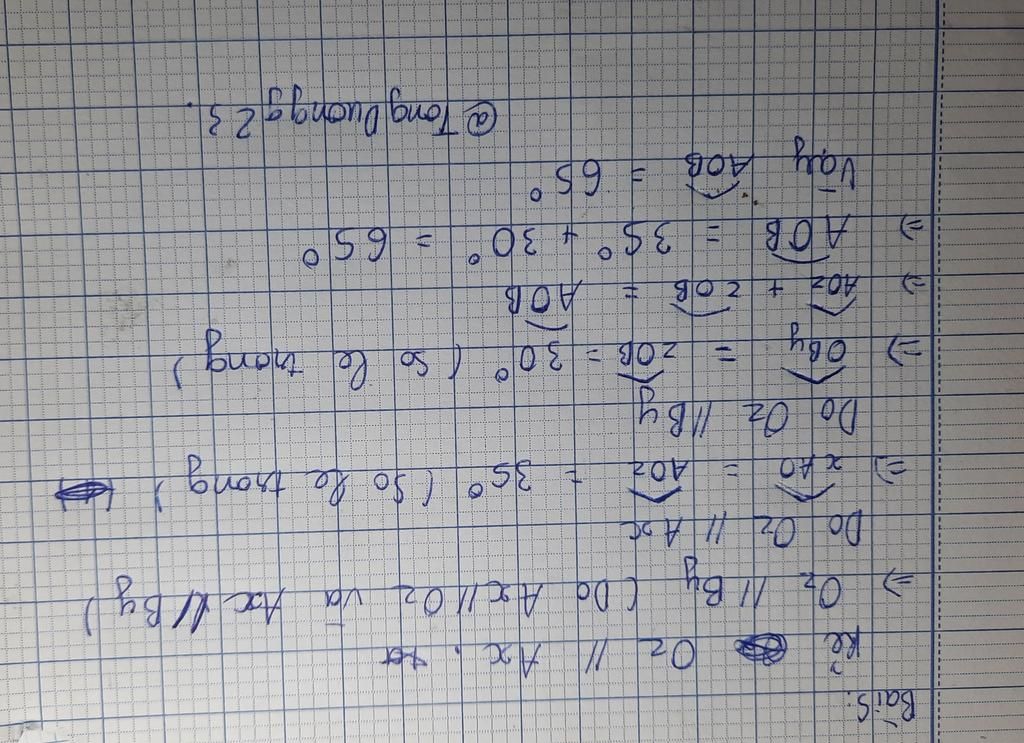 Bài 5:
Kẻ Oz // Ax.
=> Oz // By (Do Ax // Oz và Ax // By)
Do Oz // Ax
=> xAO = AOz = 35° (so le trong)
Do Oz // By
=> OBy = zOB = 30° (so le trong)
=> AOz + zOB = AOB
=> AOB = 35° + 30° = 65°
Vậy AOB = 65°
@TongDuongg23.